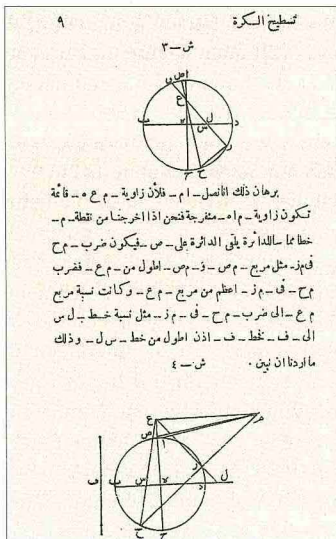 تسطيح الكرة ٩
ش — ٣
برهان ذلك انا نصل _ ام _ فلأن زاوية _ م ع ه _ قائمة
تكون زاوية _ م اه _ منفرجة فنحن اذا اخرجنا من نقطة _ م _
خطا مماسا للدائرة يلقى الدائرة على _ ص _ فيكون ضرب _ م ح
فى م ز _ مثل مربع _ م ص _ و _ م ص _ اطول من _ م ع _ فضرب
م ح _ فى _ م ز _ اعظم من مربع _ م ع _ وكانت نسبة مربع
م ع _ الى ضرب _ م ح _ فى _ م ز _ مثل نسبة خط _ ل س
الى _ ف _ فخط _ ف _ اذن اطول من خط _ س ل _ وذلك
ما اردنا ان نبين ٠ ش — ٤